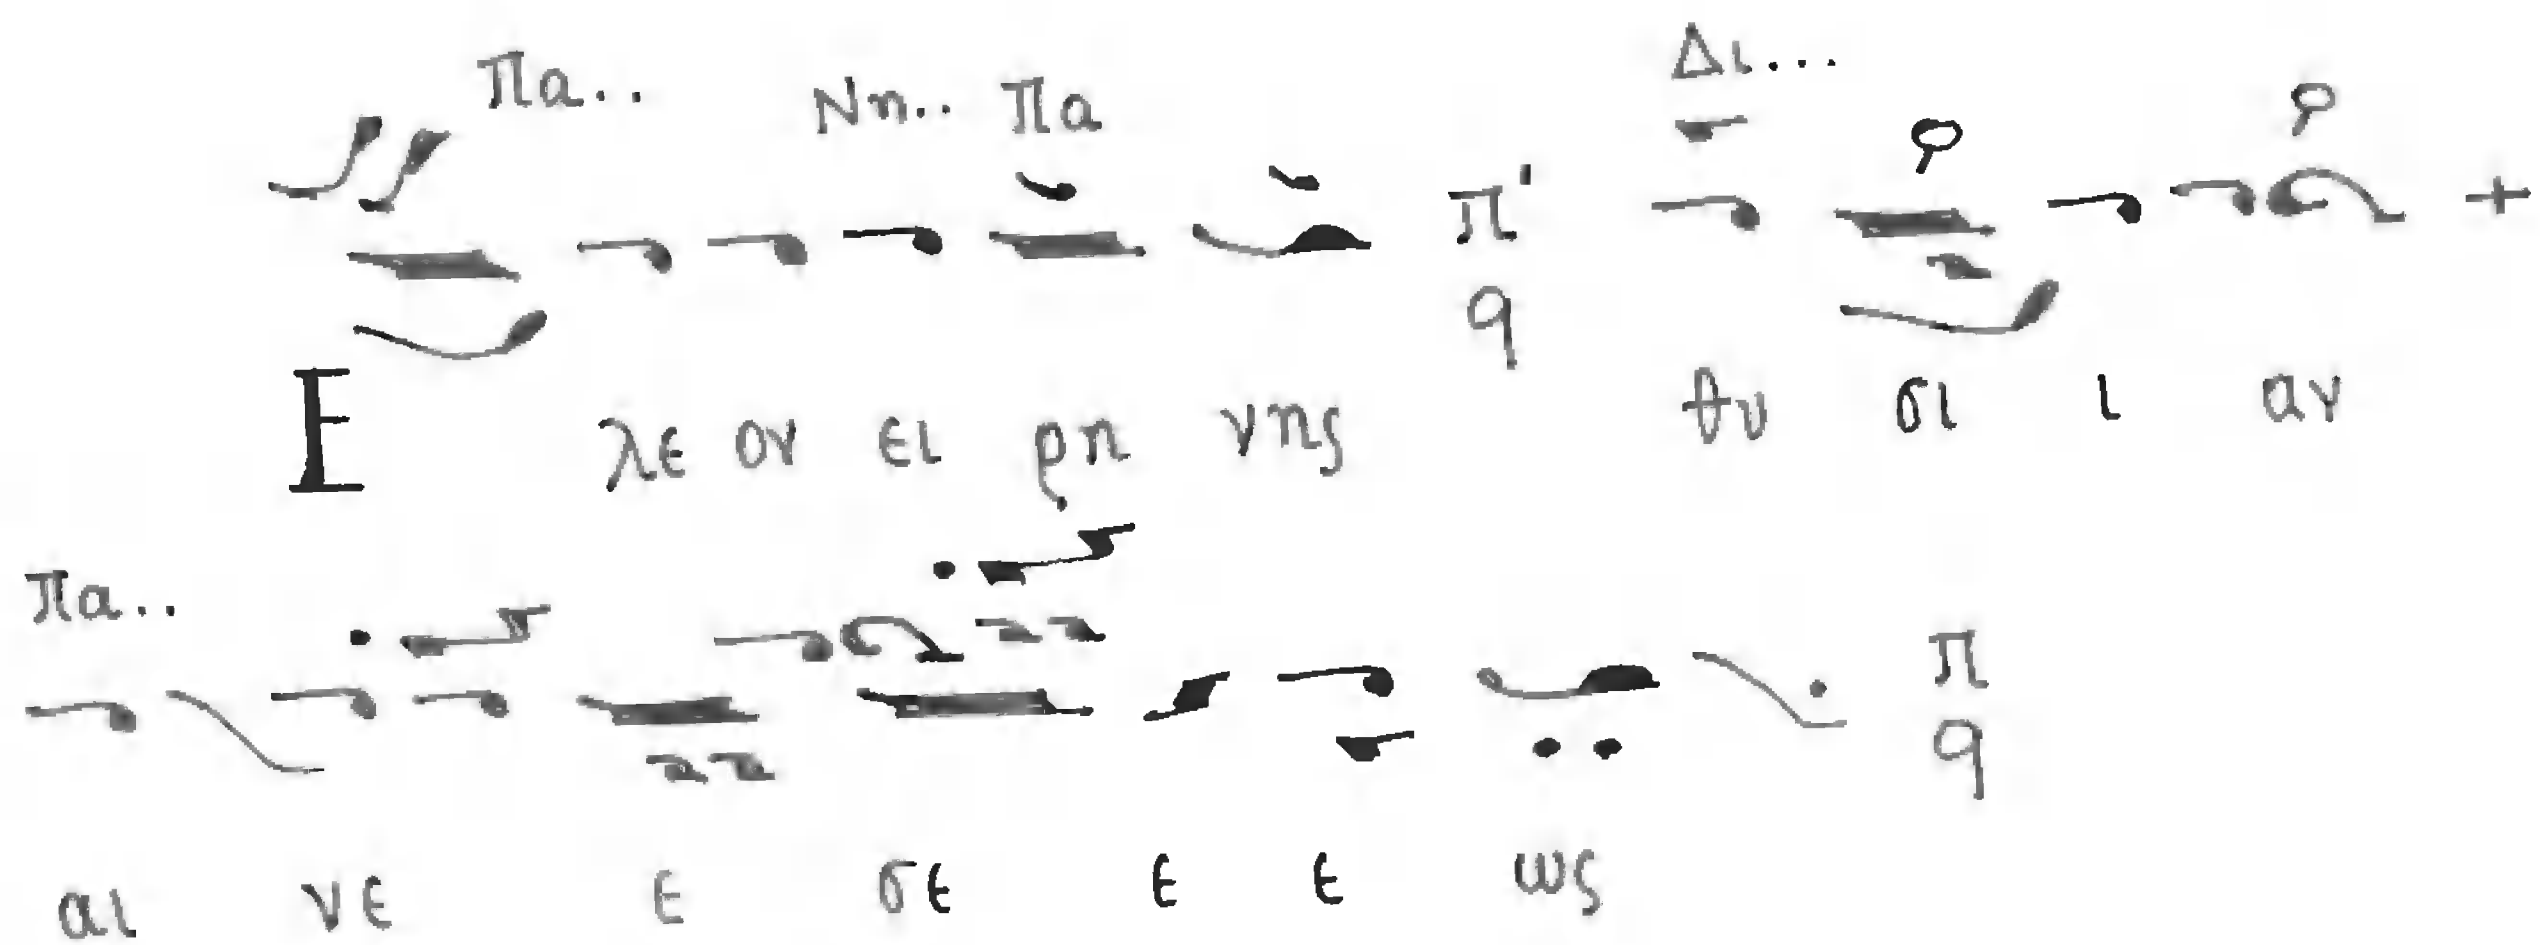 Πα.. Νη.. Πα Δι...
π' q
Ε λε ον ει ρη νης θυ σι ι αν
Πα..
π q
αι νε ε σε ε ε ως